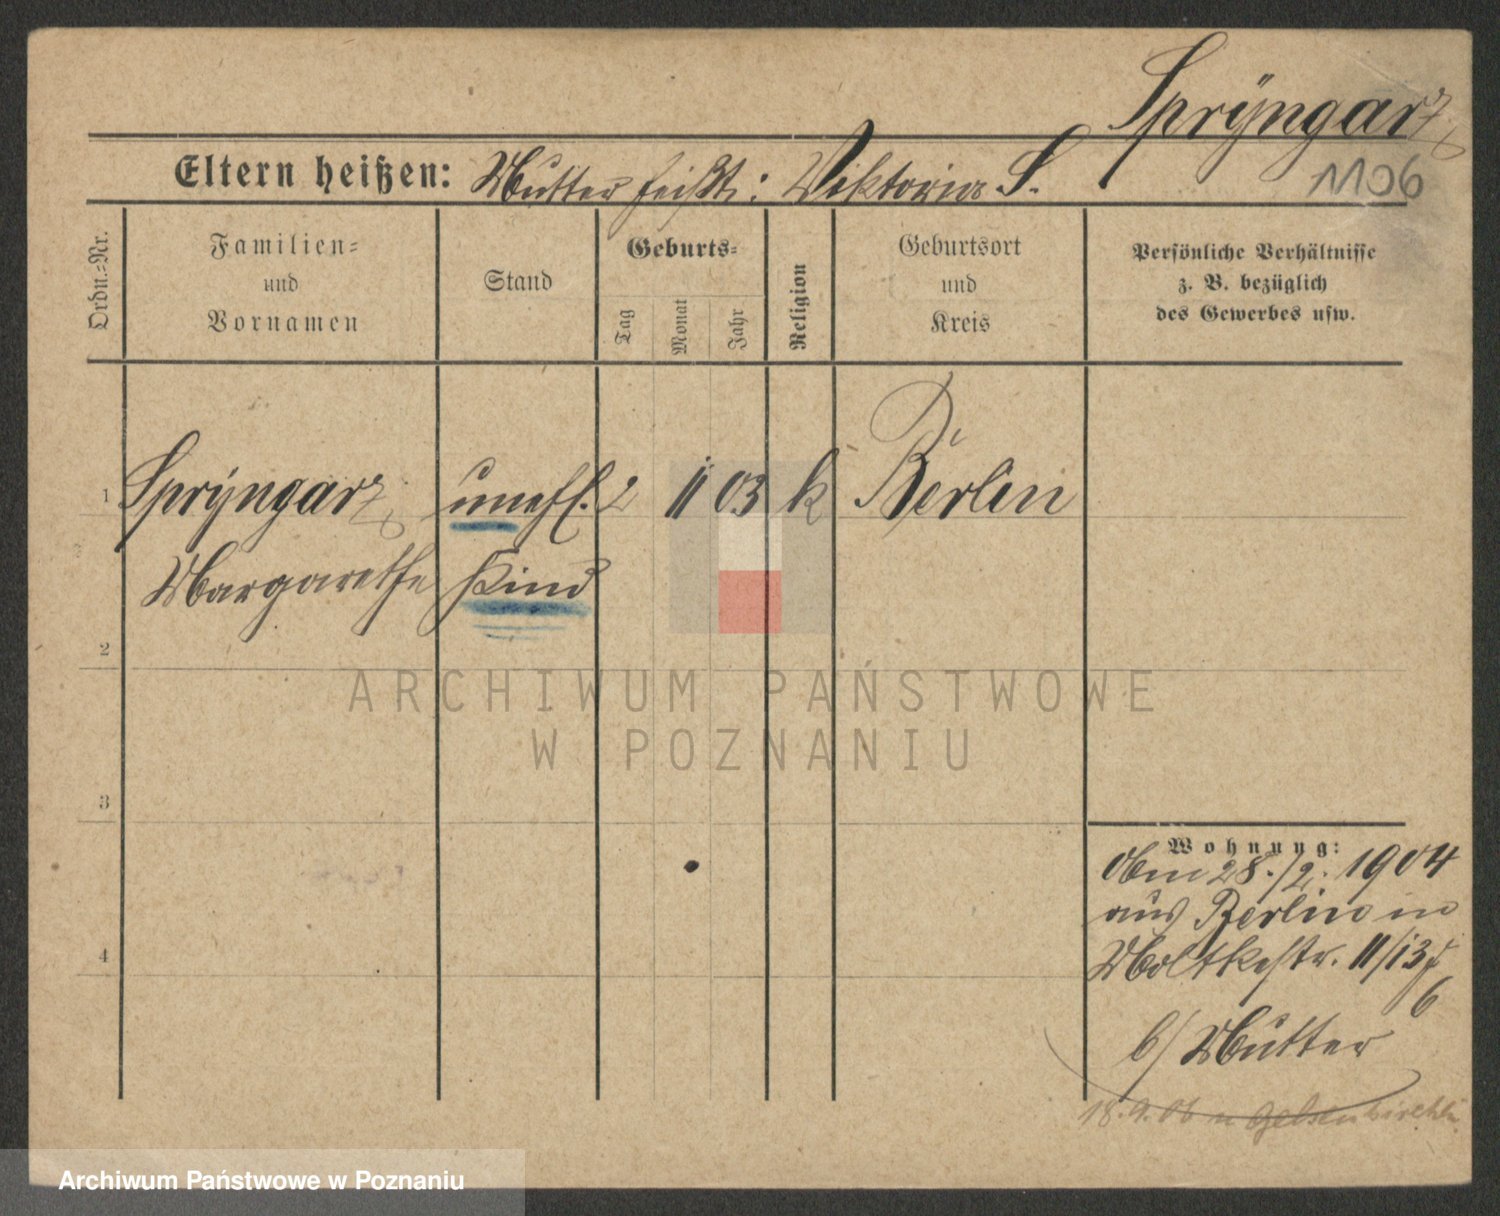 Sprÿngarz
Eltern heißen: Mutter heißt: Viktoria S.
1106
Ordn.=Nr.
Familien=
und
Vornamen
Stand
Geburts=
Tag
Monat
Jahr
Religion
Geburtsort
und
Kreis
Persönliche Verhältnisse
z. B. bezüglich
des Gewerbes usw.
1 Sprÿngarz unehl. 2 11 03 k Berlin
Margarethe Kind
2
ARCHIWUM PAŃSTWOWE
W POZNANIU
3
Wohnung:
28./2. 1904
aus Berlin in
4
Moltkestr. 11/13
6
b/ Mutter
18.9.06 n Gelsenkirchen
Archiwum Państwowe w Poznaniu